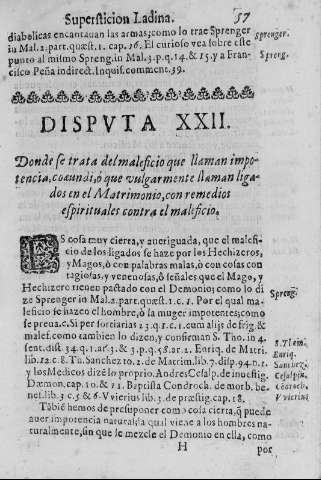 Supersticion Ladina. 57
diabolicas encantauan las armas; como lo trae Sprenger
in Mal. 2. part. quæst. 1. cap. 16. El curioso vea sobre este
punto al mismo Spreng. in Mal. 3. p. q. 14. & 15. y a Fran-
cisco Peña in direct. Inquis. comment. 39.
sprenger.
Spreng.
DISPVTA XXII.
Donde se trata del maleficio que llaman impo-
tencia, coeundi, ò que vulgarmente llaman liga-
dos en el Matrimonio, con remedios
espirituales contra el maleficio.
ES cosa muy cierta, y aueriguada, que el malefi-
cio de los ligados se haze por los Hechizeros,
y Magos, ò con palabras malas, ò con cosas con
tagiosas, y venenosas, ò señales que el Mago, y
Hechizero tienen pactado con el Demonio; como lo di
ze Sprenger in Mal. 2. part. quæst. 1. c. 1. Por el qual ma-
leficio se hazen el hombre, ò la muger impotentes; como
se prueua. c. Si per sortiarias 23. q. 1. c. 1. cum alijs de frig. &
malef. como tambien lo dizen, y confirman S. Tho. in 4.
sent. dist. 34. q. 1. ar. 3. & 3. p. q. 58. ar. 2. Enriq. de Matri.
lib. 12. c. 8. Th. Sanchez to. 2. de Matrim. lib. 7. disp. 94. n. 1.
y los Medicos dizelo proprio. Andres Cesalp. de inuestig.
Dæmon. cap. 10. & 11. Baptista Condroch. de morb. be-
net. lib. 3. c. 5. & 6. Vvierius lib. 3. de præstig. cap. 18.
Tãbiẽ hemos de presuponer como cosa cierta, q̃ puede
auer impotencia natural, la qual viene a los hombres na-
turalmente, sin que se mezcle el Demonio en ella, como
por
Spreng.
Enriq.
Sanchez
Cesalpin.
Vvierius